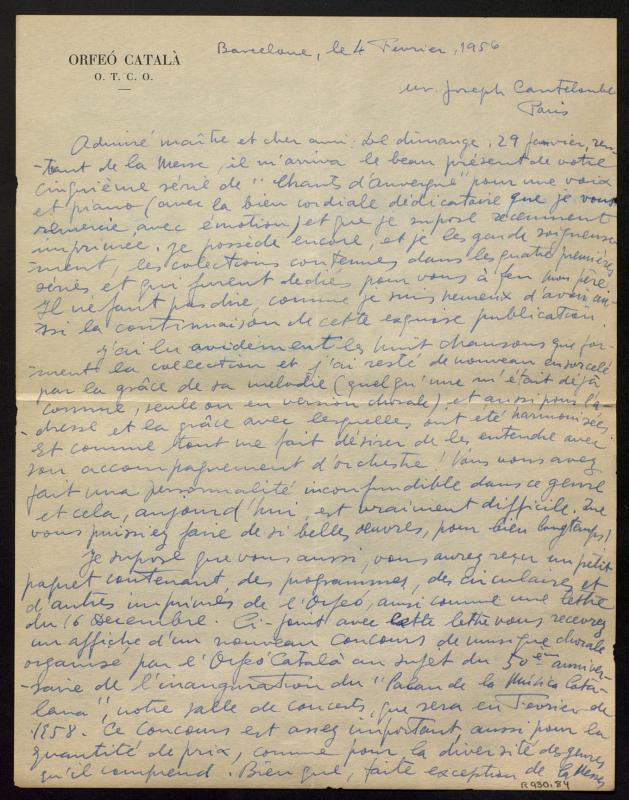 ORFEÓ CATALÀ
O. T. C. O.
Barcelone, le 4 Février, 1956
Mr. Joseph Canteloube
Paris
Admiré maître et cher ami: Le dimange, 29 janvier, ren-
-tant de la Messe, il m'arriva le beau présent de votre
cinquième série de "Chants d'auvergne" pour une voix
et piano (avec la bien cordiale dédicataire que je vous
remercie avec émotion) et que je suposé récemment
imprimée. Je possède encore, et je les garde soigneuse-
-ment, les colections contenues dans les quatre premières
séries et qui furent dediés pour vous à feu mon père.
Il ne faut pas dire comme je suis heureux d'avoir au-
ssi la continuaisón de cette exquise publication.
J'ai lu avidement les huit chansons que for-
-ment la collection et j'ai resté de nouveau ensorcelé
par la grâce de sa mélodie (quelqu'une m'était déjà
connue, seule ou en version chorale) et aussi pour l'a-
dresse et la grâce avec lesquelles ont été harmonisées.
Et comme tout me fait désirer de les entendre avec
son accompagnement d'orchestre! Vous vous avez
fait una personnalité inconfundible dans ce genre
et cela, aujourd'hui, est vraiment difficile. Que
vous puissiez faire de si belles œuvres, pour bien longtemps!
Je suposé que vous aussi, vous aurez reçu un petit
paquet contenant des programmes, des circulaires et
d'autres imprimés de l'Orfeó, aussi comme une lettre
du 16 Decembre. Ci-joint avec cette lettre vous recevrez
un affiche d'un nouveau concours de musique chorale
organisé par l'Orfeó Català au sujet du 50èm anniver-
saire de l'inauguration du "Palau de la Música Cata-
lana", notre salle de concerts, que sera en Fevrier de
1958. Ce concours est assez important, aussi pour la
quantité de prix, comme pour la diversité des genres
qu'il comprend. Bien que, faite exception de la Messe
R 930.84